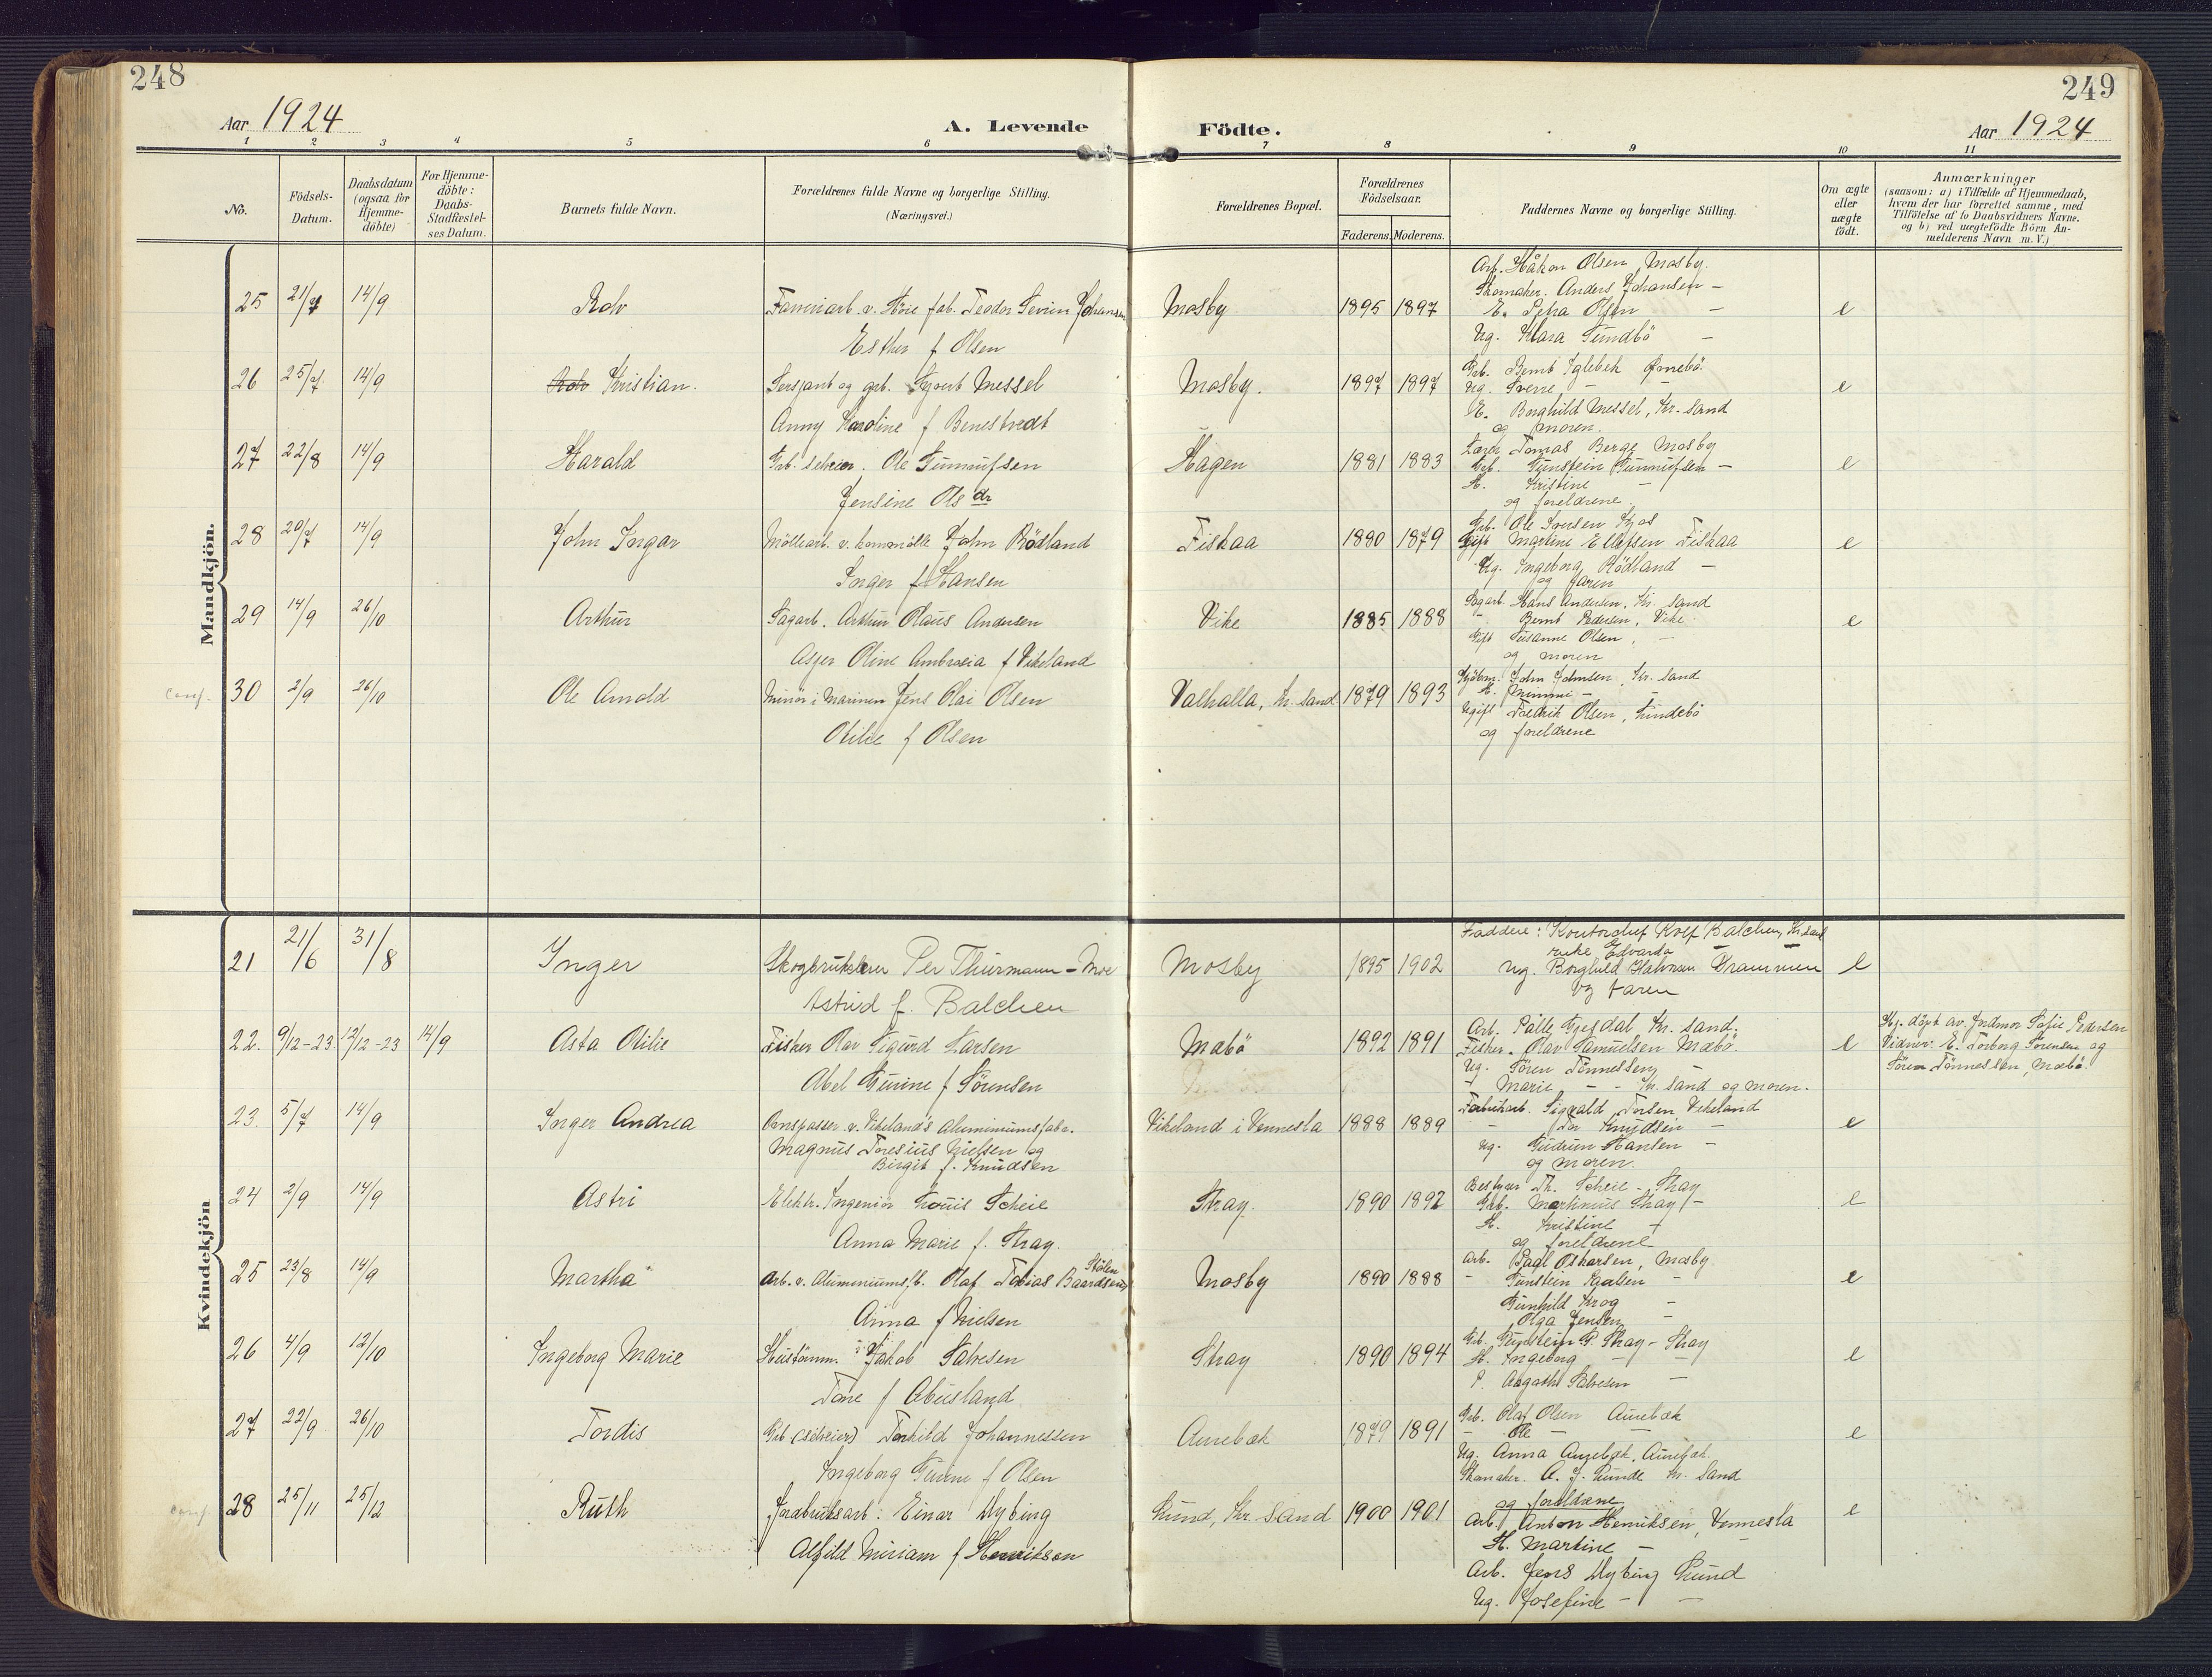 248
249
Aar 1924
A. Levende
Födte.
Aar 1924
1 2 3 4 5 6 7 8 9 10 11
No.
Födsels-
Datum.
Daabsdatum
(ogsaa for
Hjemme-
döbte)
For Hjemme-
döbte:
Daabs-
Stadfæstel-
ses Datum.
Barnets fulde Navn.
Forældrenes fulde Navne og borgerlige Stilling.
(Næringsvei.)
Forældrenes Bopæl.
Forældrenes
Födselsaar.
Faderens. Moderens.
Faddernes Navne og borgerlige Stilling.
Om ægte
eller
uægte
födt.
Anmærkninger
(saasom: a) i Tilfælde af Hjemmedaab,
hvem der har forrettet samme, med
Tilföielse af to Daabsvidners Navne.
og b) ved uægtefödte Börn An-
melderens Navn m.V.)
Mandkjön.
25 21/7 14/9 Rolv
Esther f Olsen
Mosby 1895 1897
Arb. Håkon Olsen, Mosby.
Skomaker. Anders Johansen –
E. Olsen –
Ug. Klara Sundbö –
e
26 25/7 14/9 Rolv Kristian.
Sersjant og grb. Messel
Anny Karoline f Benestvedt
Mosby. 1897 1897
Grb. Bernt Iglebek
Ug. Sverre –
E. Borghild Messel, Kr. Sand
og moren.
e
27 22/8 14/9 Harald
Grb. selveier. Ole Gunnufsen
Jensine Olsdr
Hagen 1881 1883
Tomas Berge Mosby
Grb. Gunstein Gunnufsen –
H. Kristine –
og foreldrene.
e
28 20/7 14/9 John Ingar
Möllearb. v. kornmölle John Rödland
Inger f Hansen
Fiskaa 1880 1879
Grb. Ole
Gift Martine Ellefsen Fiskaa
Ug. Ingeborg Rödland –
og faren
e
29 14/9 26/10 Arthur
Sagarb. Arthur Olaus Andersen
Oline f Vikeland
Vike 1885 1888
Sagarb. Hans Andersen, Kr. Sand
– Bernt Pedersen, Vike
Gift Susanne Olsen, –
og moren
e
conf. 30 2/9 26/10 Ole Arnold
Minör i Marinen Jens Olai Olsen
Otilie f Olsen
Valhalla, Kr. Sand 1879 1893
Kjöbm. John Johnsen, Kr. Sand
H. Mimmi – –
Ugift Fredrik Olsen,
og foreldrene
Kvindekjön
21 21/6 31/8 Inger
Per Thurmann-Moe
Astrid f. Balchen
Mosby 1895 1902
Faddere: Kontorchef Rolf Balchen, Kr.sand
Edvarda –
Ug. Borghild Halvorsen Drammen
og faren
e
22. 9/12-23 12/12-23 14/9 Asta Otilie
Fisker Olav Sigurd Larsen
Abel Gurine f Sörensen
Mæbö 1892 1891
Arb. Palle Gjesdal Kr. Sand.
Fisker. Olav Samuelsen Mæbö.
Ug. Sören Tönnessen, –
– Marie – – Kr. Sand og moren.
e
Hj. döpt av Jordmor Sofie Pedersen
Vidner: E. Torborg Sörensen og
Sören Tönnessen, Mæbö.
23. 5/7 14/9 Inger Andrea
Ovnspasser v. Vikeland's aluminiumsfabr.
Magnus Toresius Nielsen og
Birgit f. Knudsen
Vikeland i Vennesla 1888 1889
Fabrikarb. Sigvald Vikeland
– Tor Knudsen –
Ug. Gudrun Hansen –
og moren.
e
24 2/9 14/9 Astri
Elektr. Ingeniör Louis Scheie
Anna Marie f. Stray.
Stray. 1890 1892
Bestyrer Th. Scheie – Stray
Grb. Martinius Stray –
H. Kristine –
og foreldrene
e
25 23/8 14/9 Martha
Stölen
Arb. v. Aluminiumsfb. Olaf Tobias Baardsen
Anna f Nielsen
Mosby 1890 1888
Arb. Oskarsen, Mosby
– Gunstein –
Gunhild Krog –
Olga Jensen –
e
26 4/9 12/10 Ingeborg Marie
Hustömm. Jakob Salvesen
Tone f Abusland
Stray 1890 1894
Grb. Gunstein G. Stray – Stray
H. Ingeborg – –
P. Aagathe Salvesen –
e
27 22/9 26/10 Tordis
Grb (selveier) Torkild Johannessen
Ingeborg Gurine f Olsen
Aurebæk 1879 1891
Grb. Olaf Olsen Aurebæk
– Ole – –
Ug. Anna Aurebæk, Aurebæk.
Skomaker. A. J. Lunde Kr. Sand
og foreldrene
e
conf 28 25/11 25/12 Ruth
Jordbruksarb: Einar Nybing
Alfild Miriam f Henriksen
Lund, Kr. Sand 1900 1901
Arb. Anton Henriksen, Vennesla
H. Martine – –
Arb. Jens Nybing Lund
Ug. Josefine – –
e